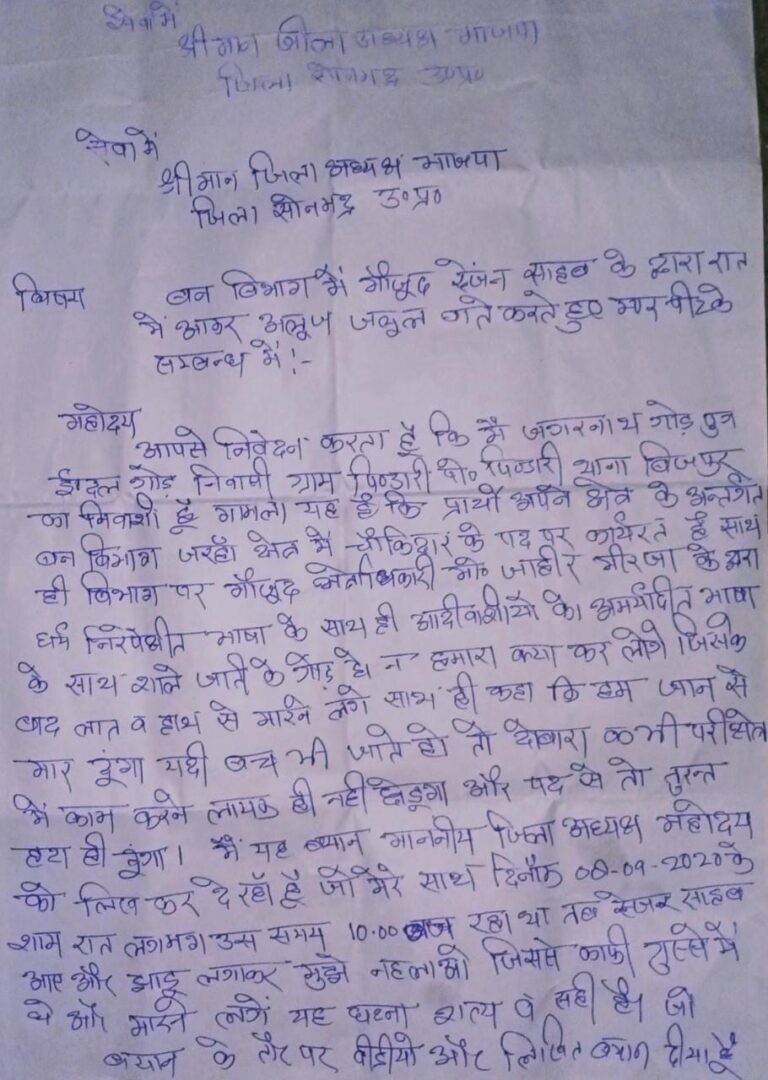 सेवा में
श्री मान जिला अध्यक्ष भाजपा
जिला सोनभद्र उ०प्र०
सेवा में
श्री मान जिला अध्यक्ष भाजपा
जिला सोनभद्र उ०प्र०
विषय बन विभाग में मौजूद रेंजन साहब के द्वारा रात
में आकर अलूज जलूल बाते करते हुए मार पीट के
सम्बन्ध में!-
महोदय
आपसे निवेदन करता हूँ कि मैं जगरनाथ गोड़ पुत्र
गोड़ निवासी ग्राम पिण्डारी पो० पिण्डारी थाना बिजपुर
का निवाशी हूँ मामला यह है कि प्रार्थी अपने क्षेत्र के अन्तर्गत
बन विभाग जरहाँ क्षेत्र में चौकिदार के पद पर कार्यरत है साथ
ही विभाग पर मौजूद क्षेत्राधिकारी मो० जाहीर मीरजा के द्वारा
धर्म निरपेक्षीत भाषा के साथ ही आदीवाशीयों को अमर्यादीत भाषा
के साथ शाले जाती के गोड़ हो न हमारा क्या कर लोगे जिसके
बाद लात व हाथ से मारने लगे साथ ही कहा कि हम जान से
मार दूंगा यदी बच भी जाते हो तो दोबारा कभी परीक्षेत्र
में काम करने लायक ही नहीं छोडूगा और पद से तो तुरन्त
हटा ही दूंगा। मैं यह ब्यान माननीय जिला अध्यक्ष महोदय
को लिख कर दे रहाँ हूँ जो मेरे साथ दिनाँक 08-09-2020 के
शाम रात लगभग उस समय 10.00 बज रहा था तब रेंजर साहब
आए और झाडू लगाकर मुझे नहलाओ जिससे काफी गुस्से में
थे और मारने लगें यह घटना शत्य व सही है। जो
बयान के तौर पर वीडीयो और लिखित बयान दीया हूँ